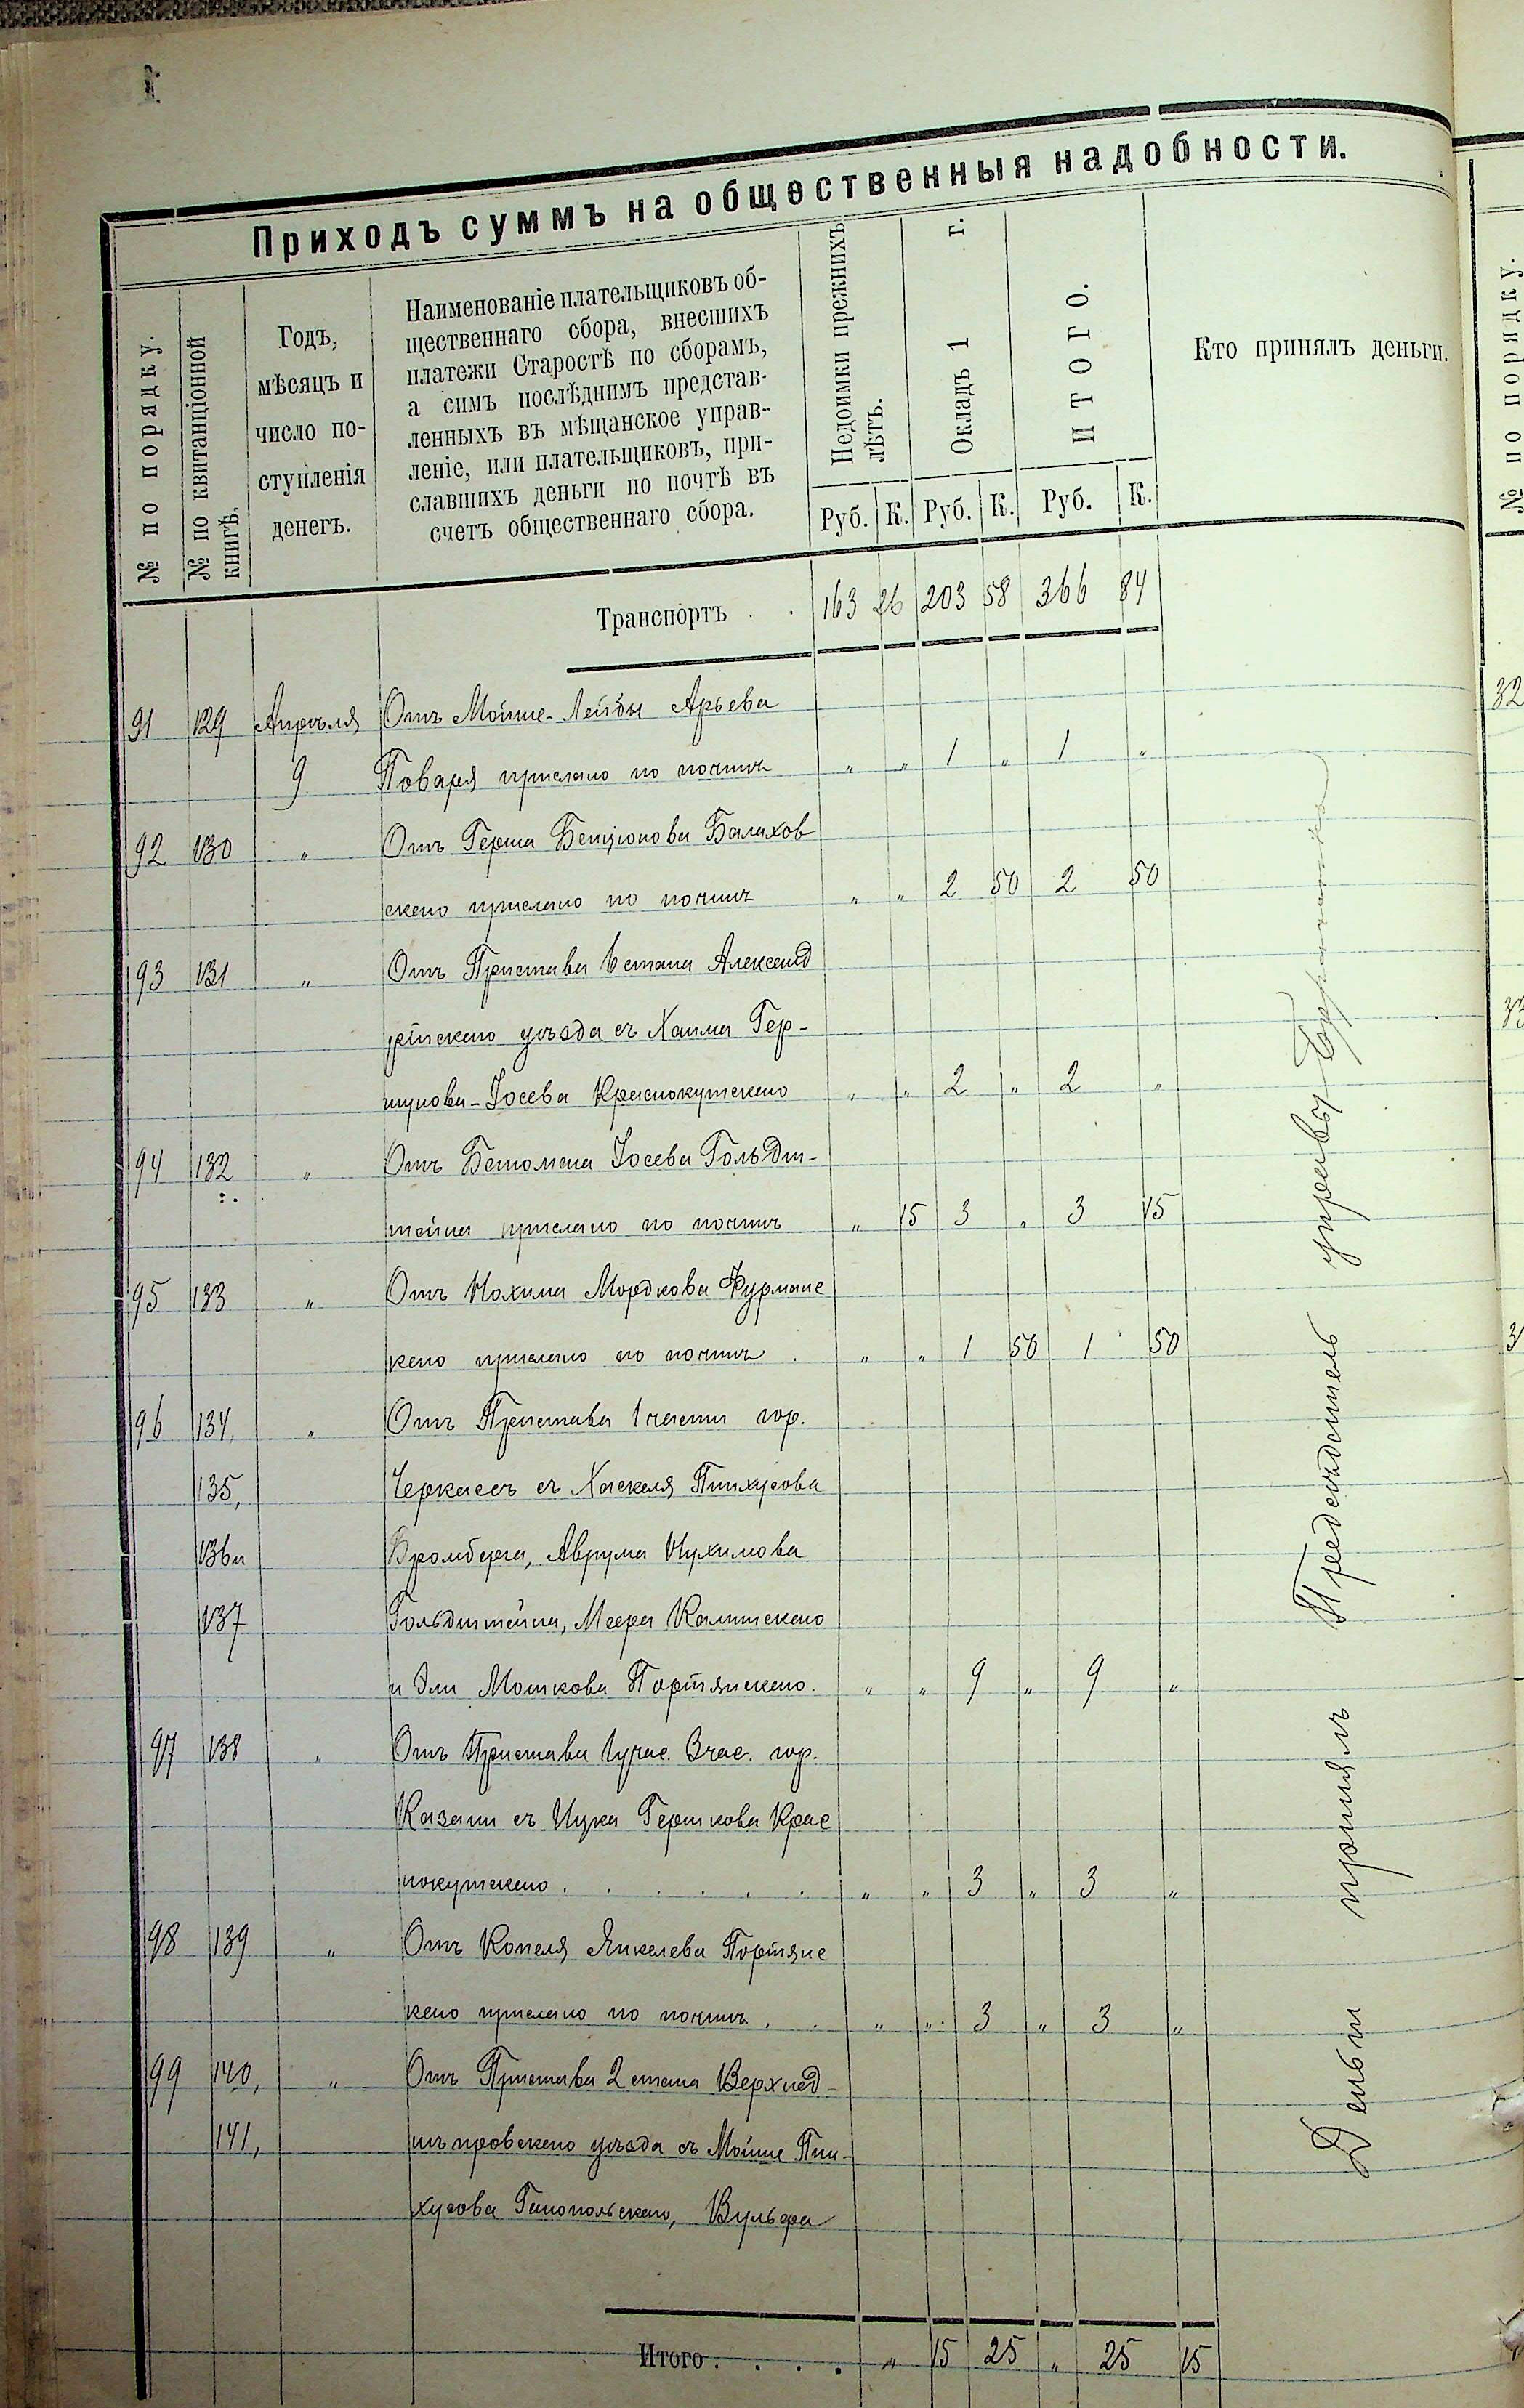 Приходъ суммъ на общественныя надобности.
№ по порядку.
№ по квитанціонной
книгѣ.
Годъ,
мѣсяцъ и
число по-
ступленія
денегъ.
Наименованіе плательщиковъ об-
щественнаго сбора, внесшихъ
платежи Старостѣ по сборамъ,
а симъ послѣднимъ представ-
ленныхъ въ мѣщанское управ-
леніе, или плательщиковъ, при-
славшихъ деньги по почтѣ въ
счетъ общественнаго сбора.
Недоимки прежнихъ
лѣтъ.
Окладъ 1 г.
ИТОГО.
Кто принялъ деньги.
Руб. К. Руб. К. Руб. К.
Транспортъ . . 163 26 203 58 366 84
91 129 Апрѣля Отъ Мойше-Лейбы Арьева
9 Поваря прислано по почтѣ " " 1 " 1 "
92 130 " Отъ Герша Бенціонова Балахов
скаго прислано по почтѣ " " 2 50 2 50
93 131 " Отъ Пристава 6 стана Александ
рійскаго уѣзда съ Хаима Гер-
шунова-Іосева Краснокутскаго " " 2 " 2 "
94 132 " Отъ Іосева Гольдш-
тейна прислано по почтѣ " 15 3 " 3 15
95 133 " Отъ Нохима Мордкова Фурманс
каго прислано по почтѣ . " " 1 50 1 50
96 134, " Отъ Пристава 1 части гор.
135, Черкассъ съ Хаскеля Пинхусова
136 и Бромберга, Аврума Нухимова
137 Гольдштейна, Меера Калинскаго
и Эли Мошкова Портянскаго. " " 9 " 9 "
97 138 " Отъ Пристава 1 учас. 3 час. гор.
Казани съ Ицка Гершкова Крас
нокутскаго . . . . . . " " 3 " 3 "
98 139 " Отъ Копеля Янкелева Портянс
каго прислано по почтѣ . . " " 3 " 3 "
99 140, " Отъ Пристава 2 стана Верхнед-
141, нѣпровскаго уѣзда съ Мойше Пин-
хусова Ганопольскаго, Вульфа
Итого . . . . " 15 25 " 25 15
Деньги принялъ Предсѣдатель управы
№ по порядку.
32
33